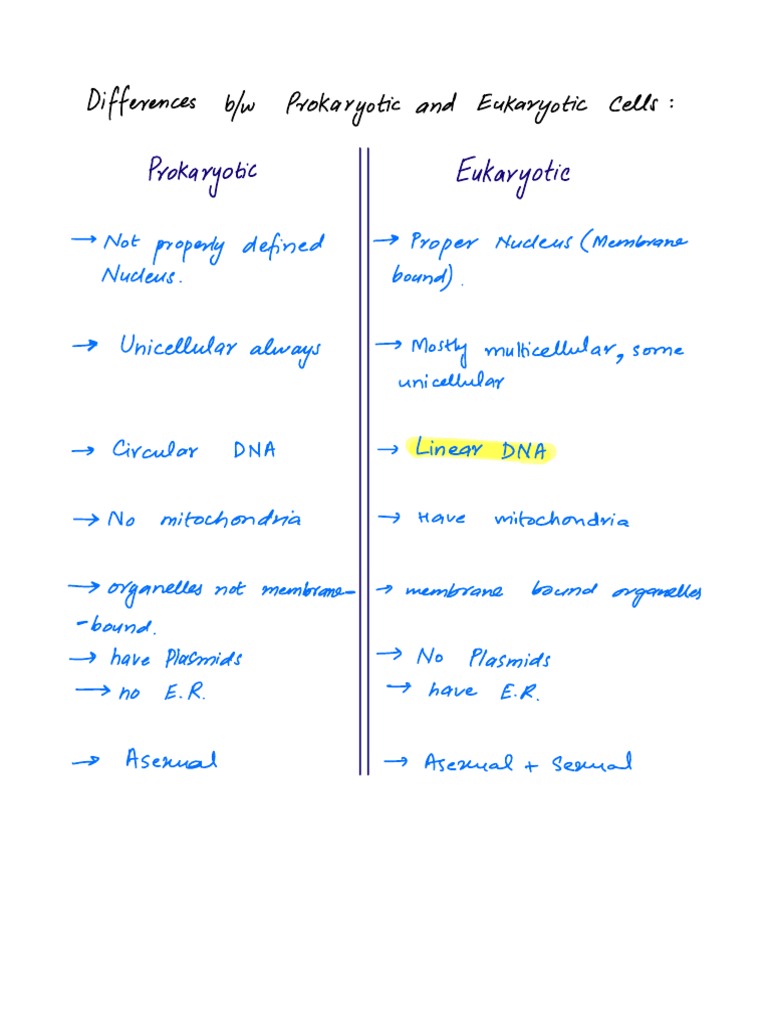 Differences b/w Prokaryotic and Eukaryotic Cells :
Prokaryotic
Eukaryotic
→ Not properly defined
Nucleus.
→ Proper Nucleus (Membrane
bound).
→ Unicellular always
→ Mostly multicellular, some
unicellular
→ Circular DNA
→ Linear DNA
→ No mitochondria
→ Have mitochondria
→ organelles not membrane-
-bound.
→ membrane bound organelles
→ have Plasmids
→ No Plasmids
→ no E.R.
→ have E.R.
→ Asexual
→ Asexual + Sexual